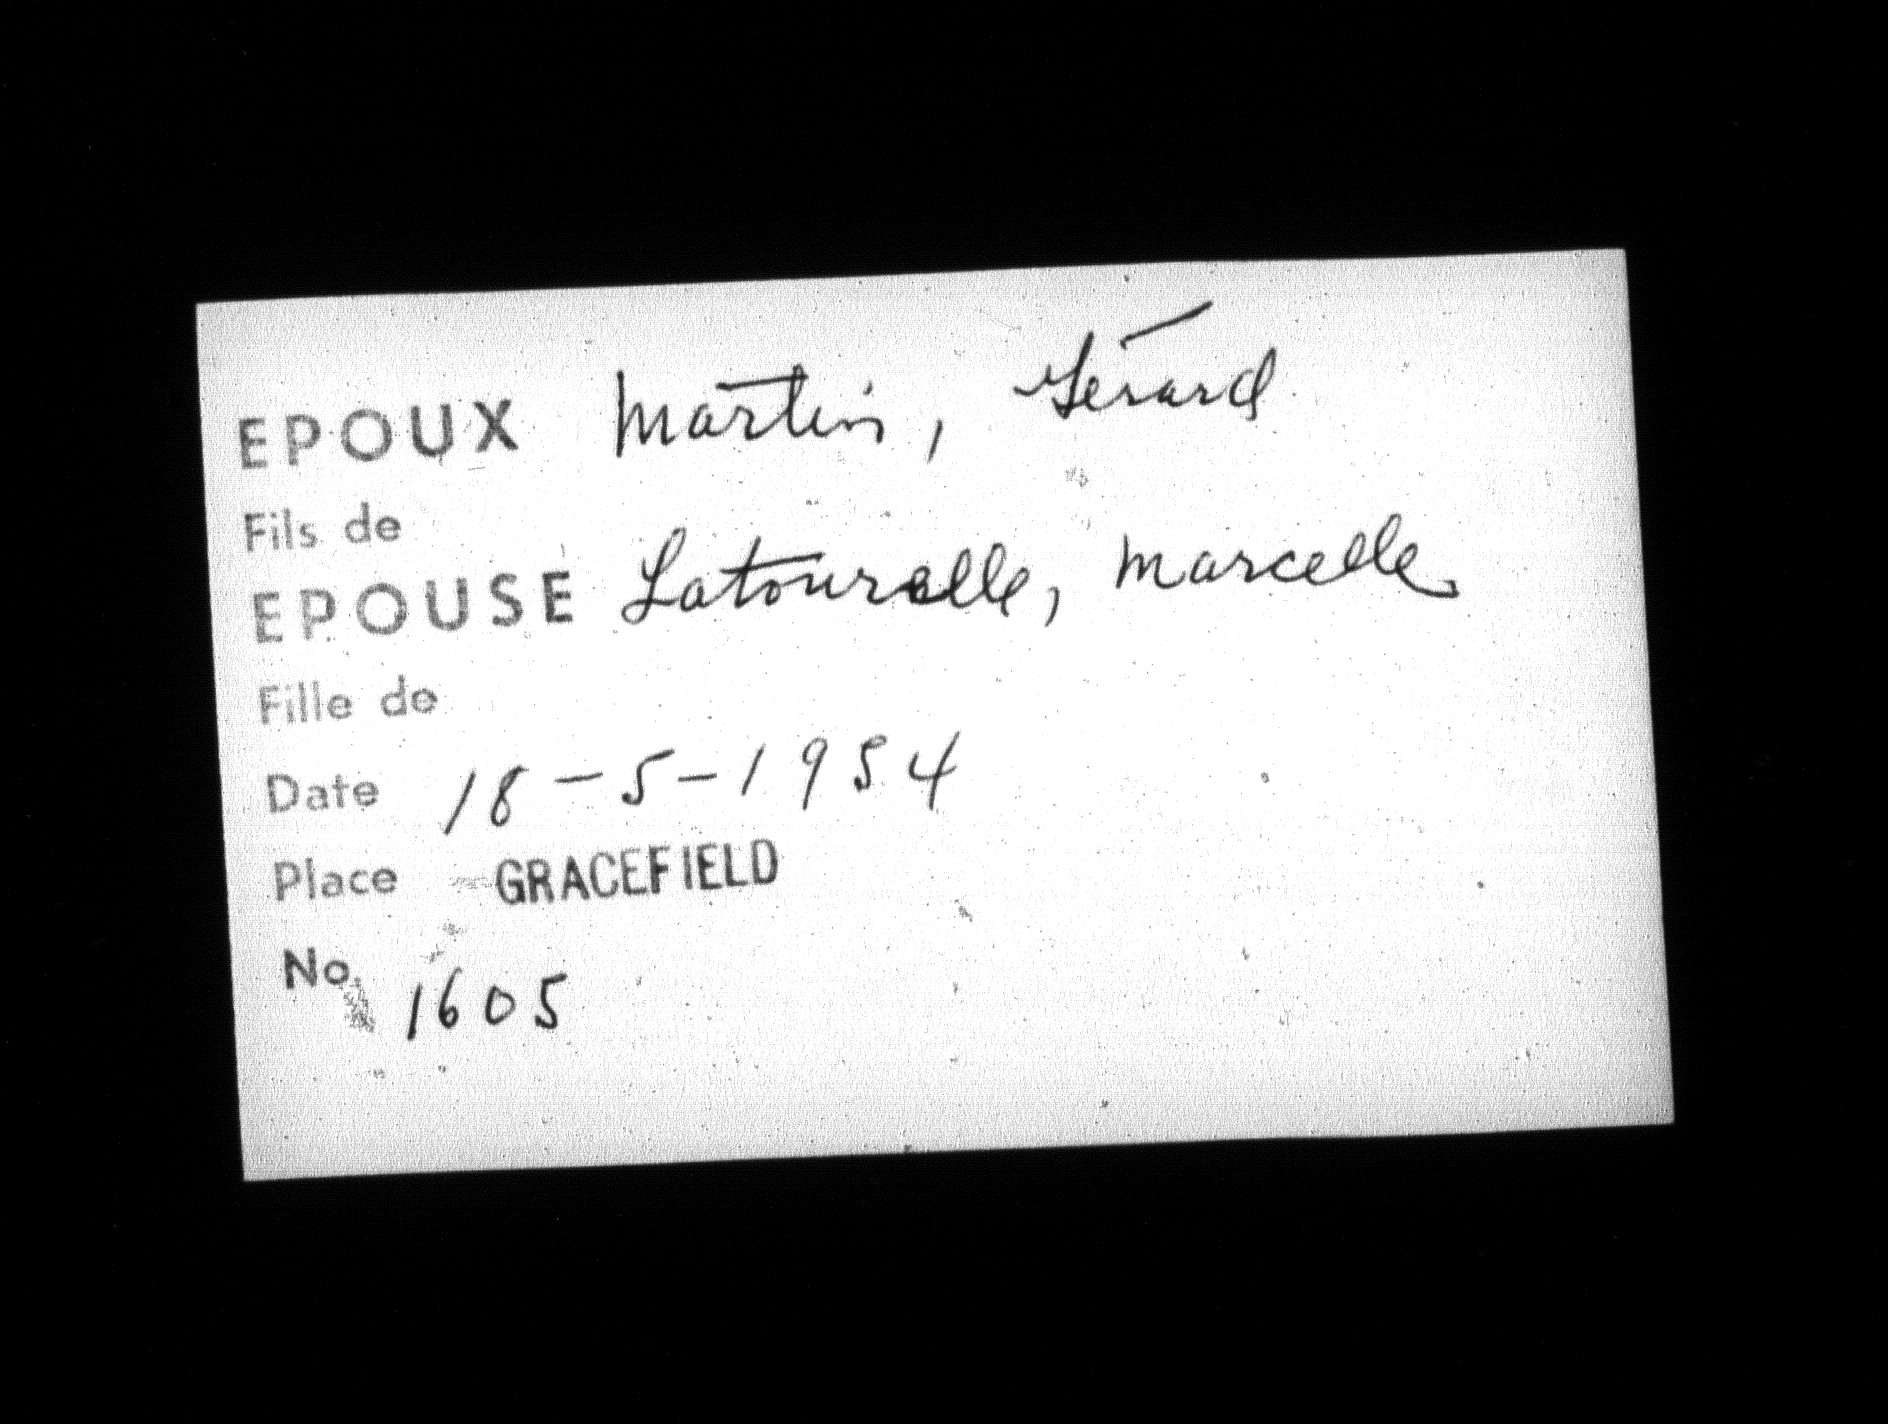 EPOUX Martin, Gérard
Fils de
EPOUSE Latourelle, Marcelle
Fille de
Date 18-5-1954
Place GRACEFIELD
No. 1605